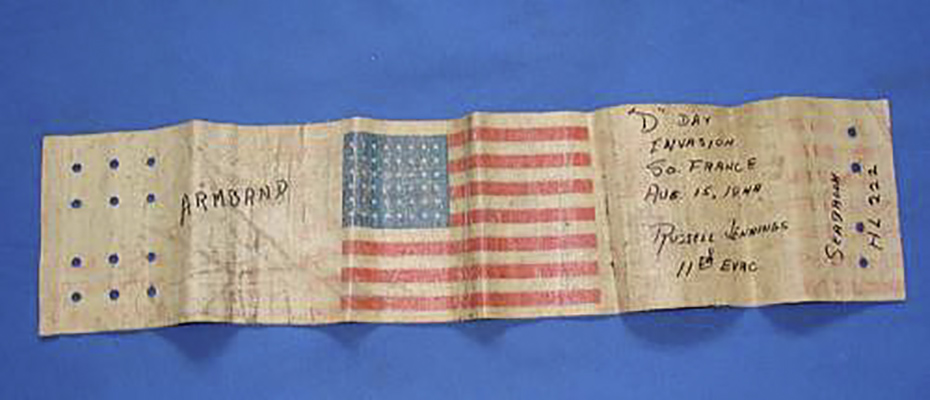 ARMBAND
"D" DAY
INVASION
SO. FRANCE
AUG. 15, 1944
RUSSELL JENNINGS
11th EVAC
HL 222